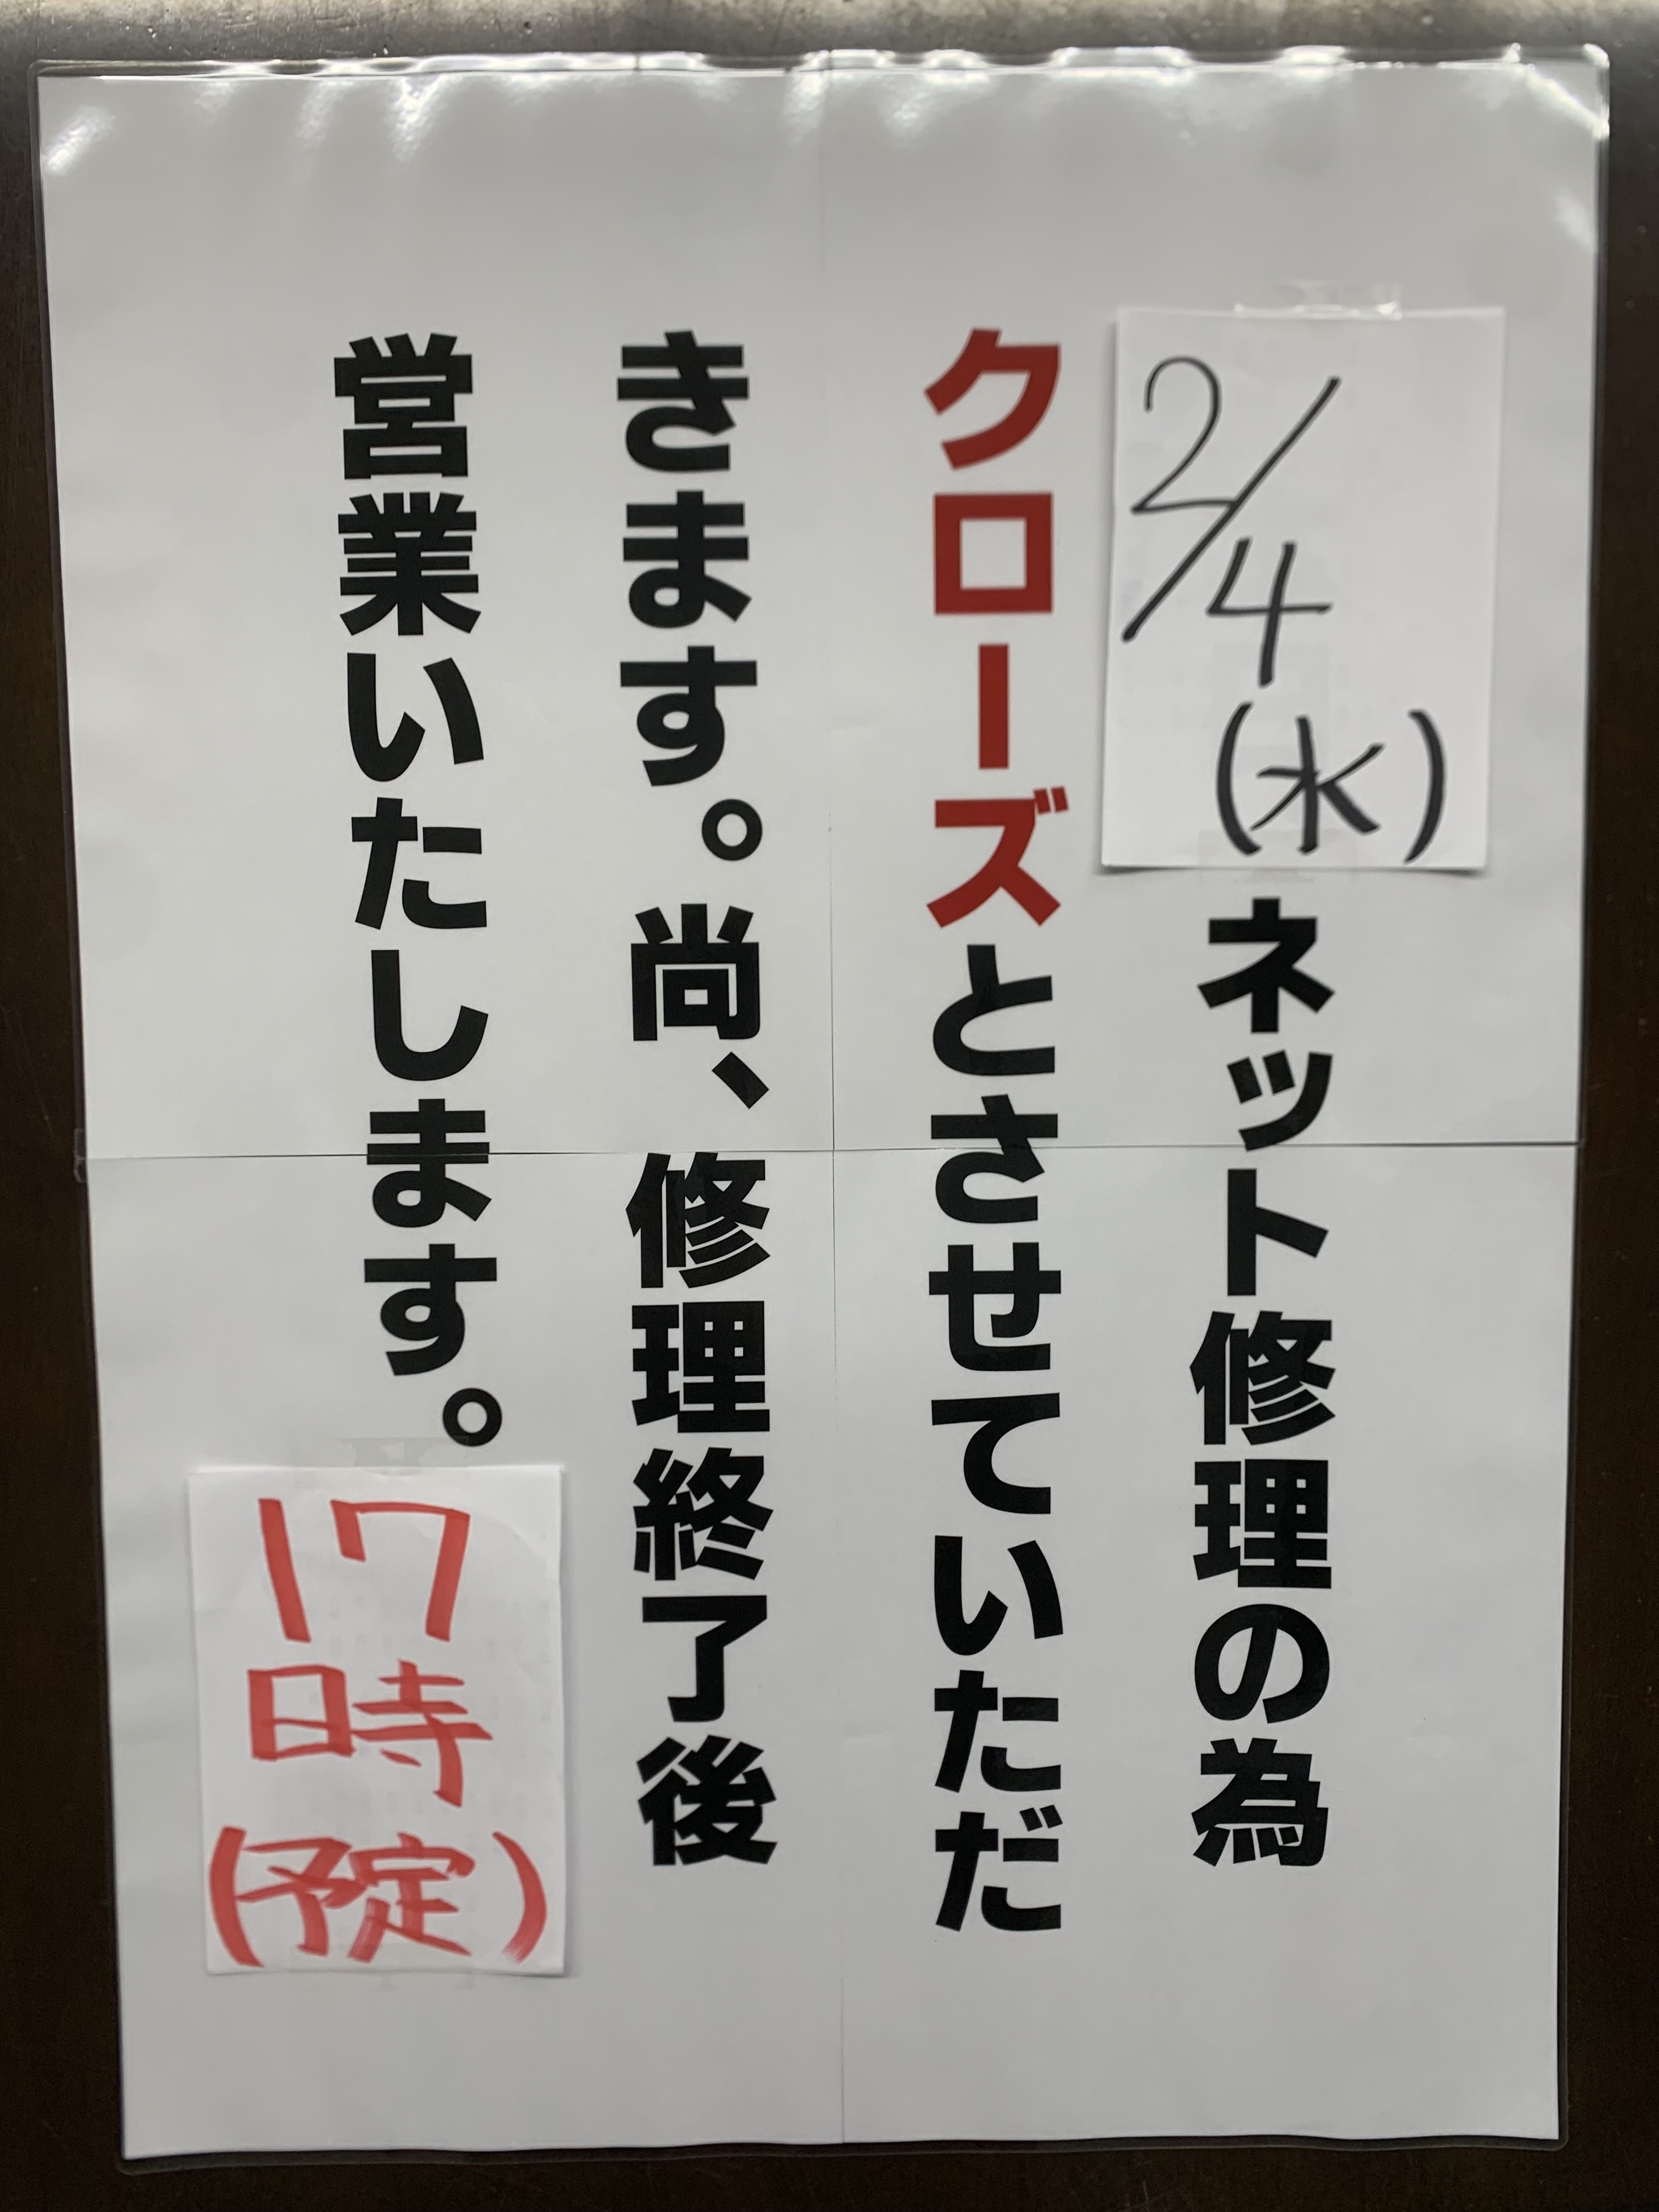 2/4
(水)
ネット修理の為
クローズとさせていただ
きます。尚、修理終了後
営業いたします。
17
時
(予定)